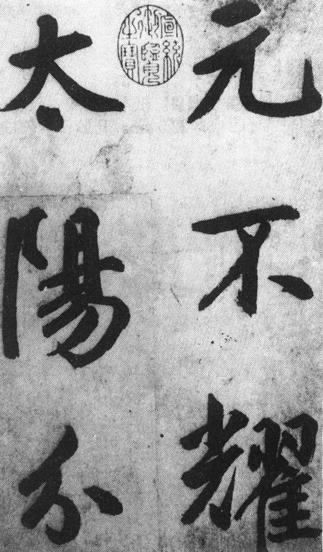 元不耀
太陽分